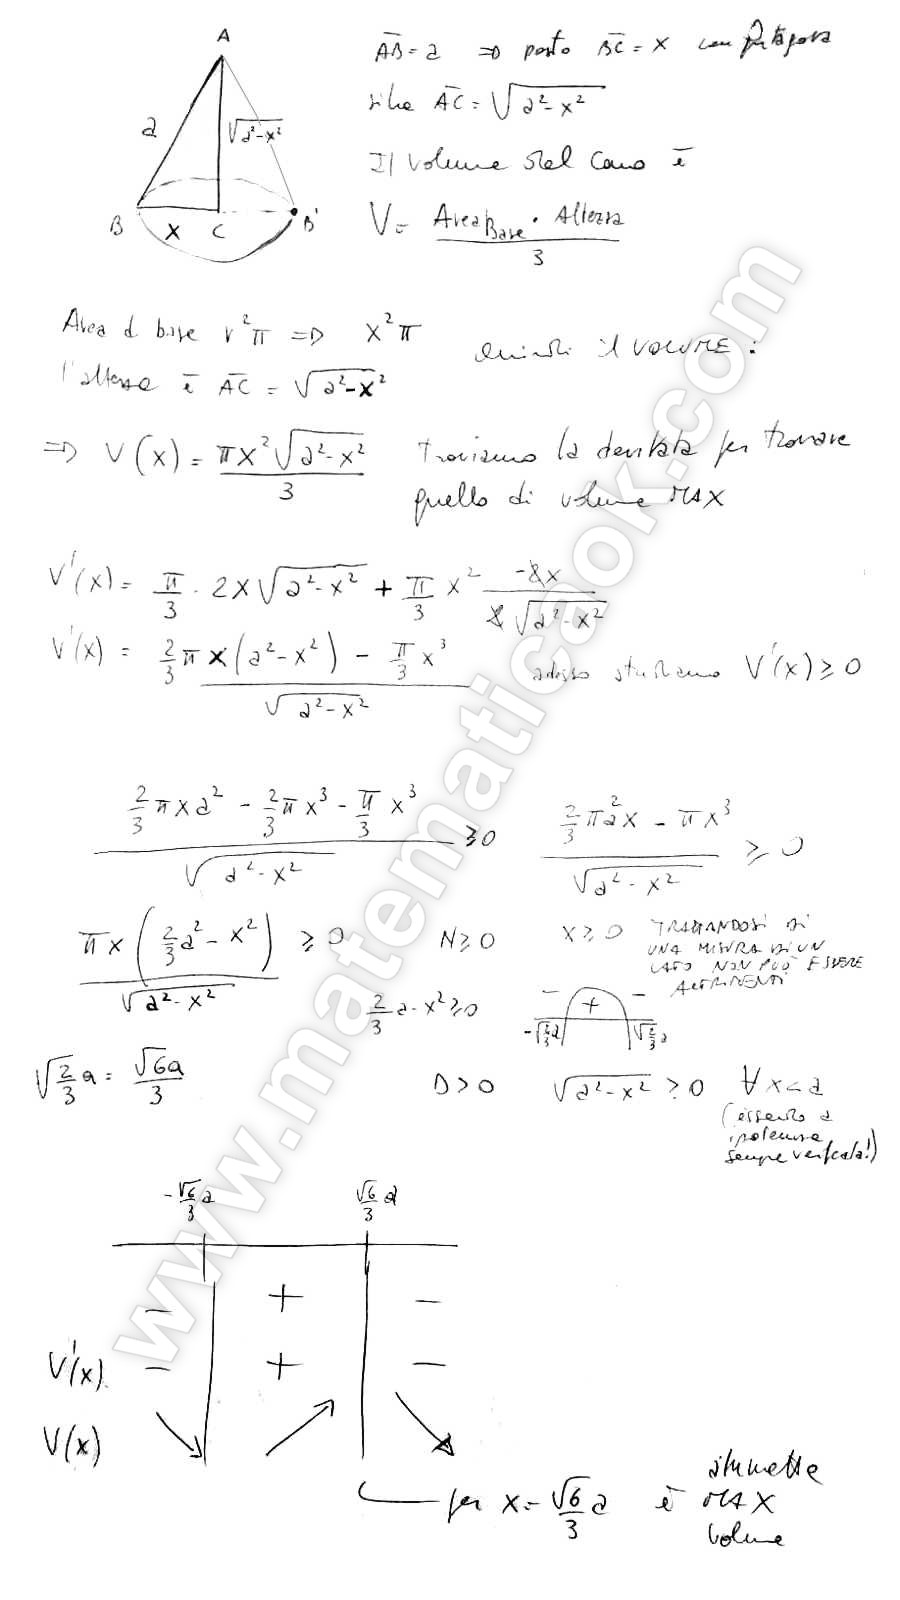 A
a
√a²-x²
B
x
C
B'
AB = a ⇒ posto BC = x con Pitagora
si ha AC = √a²-x²
Il volume del cono è
V = AreaBase · Altezza / 3
Area di base r²π ⇒ x²π
l'altezza è AC = √a²-x²
Quindi il VOLUME:
⇒ V(x) = πx²√a²-x² / 3
Troviamo la derivata per trovare
quello di volume MAX
V'(x) = π/3 · 2x√a²-x² + π/3 x² -2x / 2√a²-x²
V'(x) = 2/3 π x(a²-x²) - π/3 x³ / √a²-x²
adesso studiamo V'(x) ≥ 0
2/3 πxa² - 2/3 πx³ - π/3 x³ / √a²-x² ≥ 0
2/3 πa²x - πx³ / √a²-x² ≥ 0
πx(2/3 a² - x²) / √a²-x² ≥ 0
N ≥ 0
x ≥ 0 TRATTANDOSI DI
UNA MISURA DI UN
LATO NON PUÒ ESSERE
ALTRIMENTI
2/3 a - x² ≥ 0
- + -
-√2/3 a
√2/3 a
√2/3 a = √6a/3
D > 0
√a²-x² ≥ 0 ∀ x < a
(essendo a
ipotenusa
sempre verificata!)
-√6/3 a
√6/3 a
- + -
V'(x) - + -
V(x)
per x = √6/3 a è
MAX
volume
www.matematicaok.com